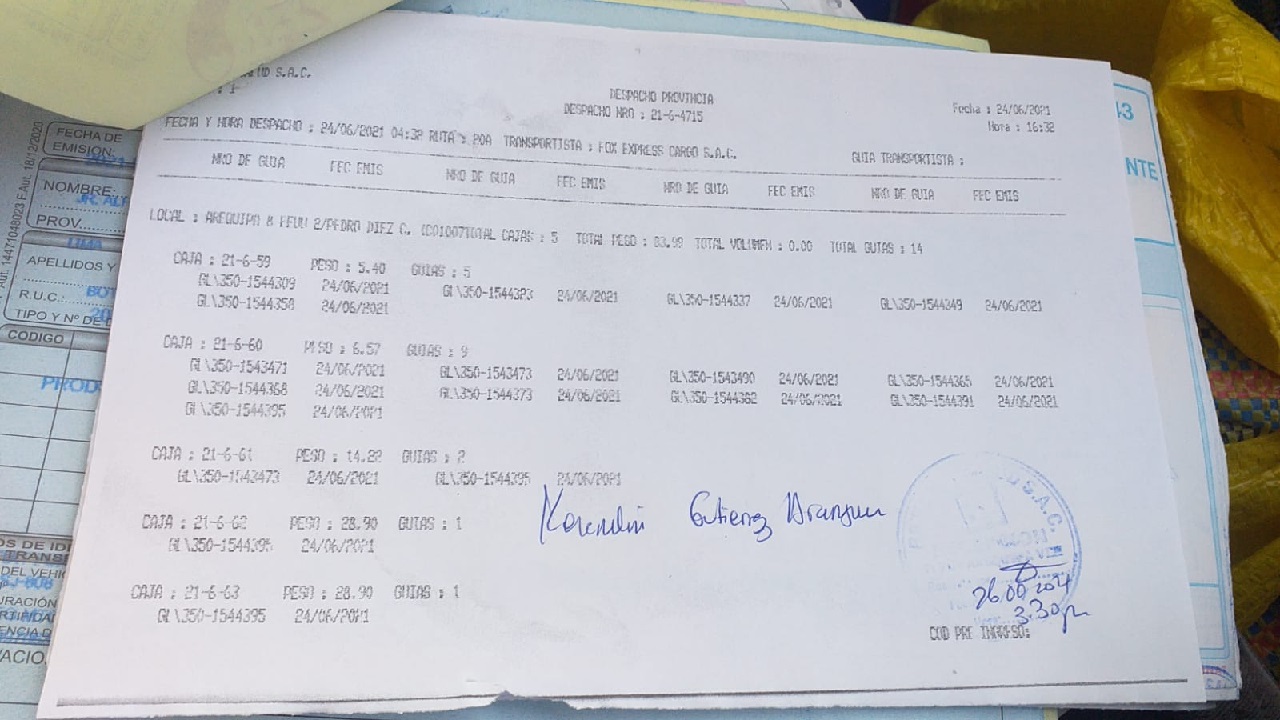 S.A.C.
DESPACHO PROVINCIA
DESPACHO NRO : 21-6-4715
Fecha : 24/06/2021
Hora : 16:32
FECHA Y HORA DESPACHO : 24/06/2021 04:32 RUTA : POA TRANSPORTISTA : FOX EXPRESS CARGO S.A.C. GUIA TRANSPORTISTA :
NRO DE GUIA FEC EMIS NRO DE GUIA FEC EMIS NRO DE GUIA FEC EMIS NRO DE GUIA FEC EMIS
LOCAL : AREQUIPA & 2/PEDRO DIEZ C. TOTAL CAJAS : 5 TOTAL PESO : 83.98 TOTAL VOLUMEN : 0.00 TOTAL GUIAS : 14
CAJA : 21-6-59 PESO : 5.40 GUIAS : 5
GL\350-1544309 24/06/2021 GL\350-1544323 24/06/2021 GL\350-1544337 24/06/2021 GL\350-1544349 24/06/2021
GL\350-1544358 24/06/2021
CAJA : 21-6-60 PESO : 6.57 GUIAS : 9
GL\350-1543471 24/06/2021 GL\350-1543473 24/06/2021 GL\350-1543490 24/06/2021 GL\350-1544365 24/06/2021
GL\350-1544368 24/06/2021 GL\350-1544373 24/06/2021 GL\350-1544382 24/06/2021 GL\350-1544391 24/06/2021
GL\350-1544395 24/06/2021
CAJA : 21-6-61 PESO : 14.22 GUIAS : 2
GL\350-1543473 24/06/2021 GL\350-1544395 24/06/2021
CAJA : 21-6-62 PESO : 28.90 GUIAS : 1
GL\350-1544395 24/06/2021
CAJA : 21-6-63 PESO : 28.90 GUIAS : 1
GL\350-1544395 24/06/2021
Gutierrez
S.A.C.
3:30
COD PRE INGRESO:
FECHA DE
EMISIÓN:
NOMBRE:
PROV.
LIMA
APELLIDOS Y
R.U.C.:
TIPO Y Nº DE
CODIGO
PROD
TRANS
DEL VEHI
43
NTE